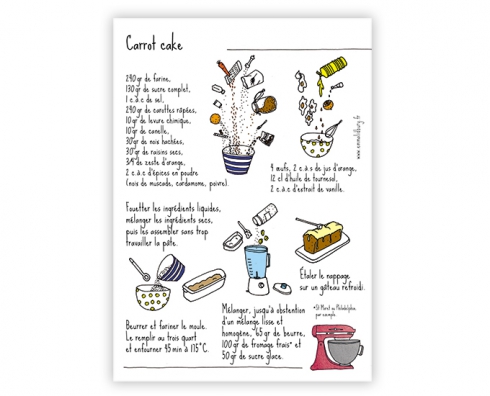 Carrot cake
240 gr de farine,
130 gr de sucre complet,
1 c.à.c de sel,
240 gr de carottes râpées,
10 gr de levure chimique,
10 gr de canelle,
30 gr de noix hachées,
30 gr de raisins secs,
de zeste d'orange,
2 c.à.c d'épices en poudre
(noix de muscade, cardamome, poivre).
4 œufs, 2 c.à.s de jus d'orange,
12 cl d'huile de tournesol,
2 c.à.c d'extrait de vanille.
Fouetter les ingrédients liquides,
mélanger les ingrédients secs,
puis les assembler sans trop
travailler la pâte.
Beurrer et fariner le moule.
Le remplir au trois quart
et enfourner 45 min à 175°C.
Étaler le nappage
sur un gâteau refroidi.
Mélanger, jusqu'à obstention
d'un mélange lisse et
homogène, 65 gr de beurre,
100 gr de fromage frais* et
50 gr de sucre glace.
*St Moret ou Philadelphia
par exemple